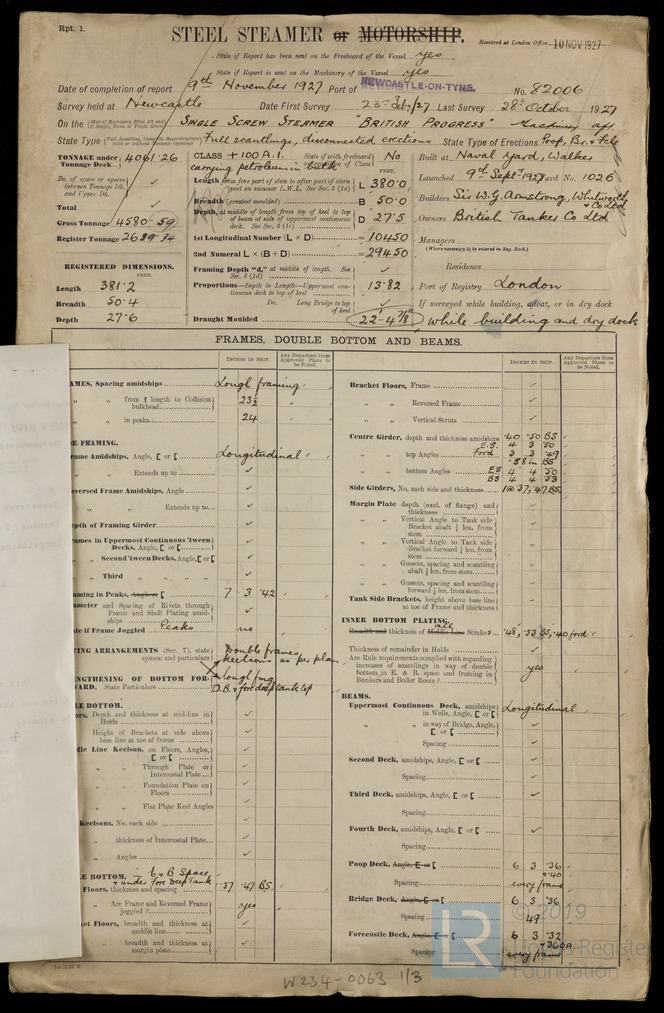 Rpt. 1.
STEEL STEAMER or MOTORSHIP.
Received at London Office 10 NOV 1927
State if Report has been sent on the Freeboard of the Vessel yes
State if Report is sent on the Machinery of the Vessel yes
Date of completion of report 9th November 1927 Port of NEWCASTLE-ON-TYNE. No. 82006
Survey held at Newcastle Date First Survey 23rd Feb/27 Last Survey 28th October 1927
On the SINGLE SCREW STEAMER "BRITISH PROGRESS" Machinery aft
State Type Full scantlings, disconnected erections State Type of Erections Poop, Br. & Fcle
TONNAGE under Tonnage Deck 4061.26
Do. of space or spaces between Tonnage Dk. and Upper Dk.
Total
Gross Tonnage 4580.59
Register Tonnage 2639.34
REGISTERED DIMENSIONS.
FEET.
Length 381.2
Breadth 50.4
Depth 27.6
CLASS + 100 A.1. State if with freeboard No
carrying petroleum in bulk
Length from fore part of stem to after part of stern post on summer L.W.L. See Sec. 3 (1a) L 380.0
Breadth (greatest moulded) B 50.0
Depth, at middle of length from top of keel to top of beam at side of uppermost continuous deck. See Sec. 3 (1c) D 27.5
1st Longitudinal Number (L × D) = 10450
2nd Numeral L × (B + D) = 29450
Framing Depth "d," at middle of length. See Sec. 3 (1d)
Proportions—Depth to Length—Uppermost continuous deck to top of keel 13.82
Do. Long Bridge to top of keel
Draught Moulded 22'-4 7/8"
Built at Naval Yard, Walker
Launched 9th Septr 1927 Yard No. 1026
Builders Sir W.G. Armstrong, Whitworth & Co Ltd
Owners British Tanker Co Ltd
Managers
(Where necessary to be entered in Reg. Book.)
Residence
Port of Registry London
If surveyed while building, afloat, or in dry dock
while building and dry dock
FRAMES, DOUBLE BOTTOM AND BEAMS.
INCHES IN SHIP.
Any Departure from Approved Plans to be Noted.
INCHES IN SHIP.
Any Departure from Approved Plans to be Noted.
AMES, Spacing amidships Longl framing
" " from ⅗ length to Collision bulkhead 23½
" " in peaks 24
E FRAMING.
rame Amidships, Angle, [ or [ Longitudinal
" " Extends up to
eversed Frame Amidships, Angle
" " Extends up to
epth of Framing Girder
rames in Uppermost Continuous 'tween Decks, Angle, [ or [
" Second 'tween Decks, Angle, [ or [
" Third " " " "
aming in Peaks, Angle or [ 7 3 .42
ameter and Spacing of Rivets through Frame and Shell Plating amidships
ate if Frame Joggled Peaks no
TING ARRANGEMENTS (Sec. 7), state system and particulars Double frames & sections as per plan
ENGTHENING OF BOTTOM FORWARD. State Particulars Longl fmg D.B. & fore deep tank top
LE BOTTOM.
ors, Depth and thickness at mid-line in Holds
Height of Brackets at side above base line at toe of frame
dle Line Keelson, on Floors, Angles, [ or [
" " Through Plate or Intercostal Plate
" " Foundation Plate on Floors
" " Flat Plate Keel Angles
Keelsons, No. each side
" thickness of Intercostal Plate
" Angles
LE BOTTOM. E & B Space & under fore deep tank
Floors, thickness and spacing .37 .47 BS.
" Are Frame and Reversed Frame joggled? yes
ket Floors, breadth and thickness at middle line
" breadth and thickness at margin plate
Bracket Floors, Frame
" " Reversed Frame
" " Vertical Struts
Centre Girder, depth and thickness amidships 40 .50 BS
" " top Angles E.S. 4 3 .50
Ford 3 3 .49
.58 in BS
" " bottom Angles ES 4 4 .50
BS 4 4 .53
Side Girders, No. each side and thickness 1@.37, .47 BS.
Margin Plate depth (excl. of flange) and thickness
" " Vertical Angle to Tank side Bracket abaft ¼ len. from stem
" " Vertical Angle to Tank side Bracket forward ¼ len. from stem
" " Gussets, spacing and scantling abaft ¼ len. from stem
" " Gussets, spacing and scantling forward ¼ len. from stem
Tank Side Brackets, height above base line at toe of Frame and thickness
INNER BOTTOM PLATING.
Breadth and thickness of Middle Line all Strake .48, .53 BS, .40 ford
Thickness of remainder in Holds
Are Rule requirements complied with regarding increases of scantlings in way of double bottom in E. & B. space and framing in Bunkers and Boiler Room? yes
BEAMS.
Uppermost Continuous Deck, amidships in Wells, Angle, [ or [ Longitudinal
" " in way of Bridge, Angle, [ or [
Spacing
Second Deck, amidships, Angle, [ or [
Spacing
Third Deck, amidships, Angle, [ or [
Spacing
Fourth Deck, amidships, Angle, [ or [
Spacing
Poop Deck, Angle, [ or [ 6 3 .36
.40
Spacing every frame
Bridge Deck, Angle, [ or [ 6 3 .36
Spacing 49
Forecastle Deck, Angle, [ or [ 6 3 .32
.36 OA
Spacing every frame
LR
© 2019
Lloyd's Register
Foundation
W234-0063 1/3